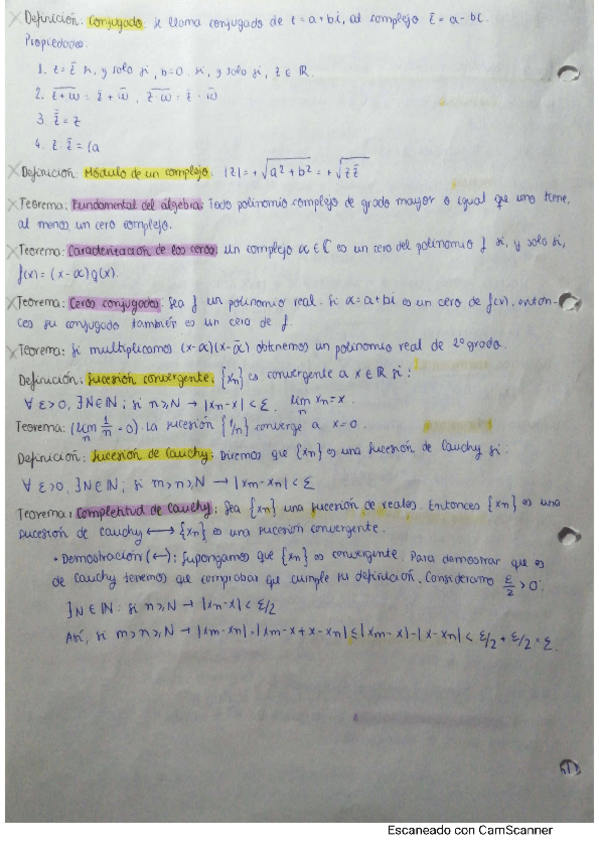 Definición: Conjugado: se llama conjugado de z = a + bi, al complejo z̄ = a - bi.
Propiedades
1. z = z̄ si, y solo si, b=0 si, y solo si, z ∈ ℝ.
2. \overline{z+w} = z̄ + w̄, \overline{z·w} = z̄ · w̄
3. \overline{z̄} = z
4. z · z̄ = (a
Definición: Módulo de un complejo. |z| = +√(a² + b²) = +√(z z̄)
Teorema: Fundamental del álgebra: Todo polinomio complejo de grado mayor o igual que uno tiene,
al menos un cero complejo.
Teorema: Caracterización de los ceros. Un complejo α ∈ ℂ es un cero del polinomio f si, y solo si,
f(x) = (x - α) q(x).
Teorema: Ceros conjugados: Sea f un polinomio real. Si α = a + bi es un cero de f(x), enton-
ces su conjugado también es un cero de f.
Teorema: Si multiplicamos (x - α)(x - ᾱ) obtenemos un polinomio real de 2º grado.
Definición: Sucesión convergente: {xn} es convergente a x ∈ ℝ si:
∀ ε > 0, ∃ N ∈ ℕ; si n ≥ N → |xn - x| < ε. lim_n xn = x.
Teorema: (lim_n 1/n = 0). La sucesión {1/n} converge a x = 0.
Definición: Sucesión de Cauchy: Diremos que {xn} es una sucesión de Cauchy si:
∀ ε > 0, ∃ N ∈ ℕ; si m > n ≥ N → |xm - xn| < ε
Teorema: Completitud de Cauchy: Sea {xn} una sucesión de reales. Entonces {xn} es una
sucesión de cauchy ⟷ {xn} es una sucesión convergente.
• Demostración (←): Supongamos que {xn} es convergente. Para demostrar que es
de Cauchy tenemos que comprobar que cumple su definición. Consideramos ε/2 > 0:
∃ N ∈ ℕ: si n ≥ N → |xn - x| < ε/2
Así, si m > n ≥ N → |xm - xn| = |xm - x + x - xn| ≤ |xm - x| - |x - xn| < ε/2 + ε/2 = ε.
Escaneado con CamScanner